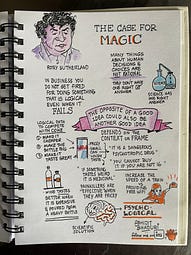 THE CASE FOR
MAGIC
RORY SUTHERLAND
MANY THINGS
ABOUT HUMAN
DECISIONS &
CHOICES ARE
NOT RATIONAL.
THEY DON'T HAVE
ONE RIGHT OR
WRONG ANSWER
SCIENCE HAS
ONE RIGHT
ANSWER
IN BUSINESS YOU
DO NOT GET FIRED
FOR DOING SOMETHING
THAT IS LOGICAL,
EVEN WHEN IT
FAILS
THE OPPOSITE OF A GOOD
IDEA COULD ALSO BE
ANOTHER GOOD IDEA
DEPENDS ON THE
CONTEXT OR FRAME
LOGICAL WAYS
TO COMPETE
WITH COKE
MAKE IT
TASTE GREAT
IT IS A DANGEROUS
PSYCHOTROPIC DRUG
YOU CANNOT BUY
IT IF YOU ARE NOT 16
IF SOMETHING
TASTES WEIRD
IT IS MEDICINAL
INCREASE THE
SPEED ON A TRAIN
WINE TASTES
BETTER WHEN
IT IS EXPENSIVE
& POURED FROM
A HEAVY BOTTLE
PAINKILLERS ARE
EFFECTIVE WHEN
THEY ARE PRICEY
SCIENTIFIC
SOLUTION
PSYCHO-
LOGICAL